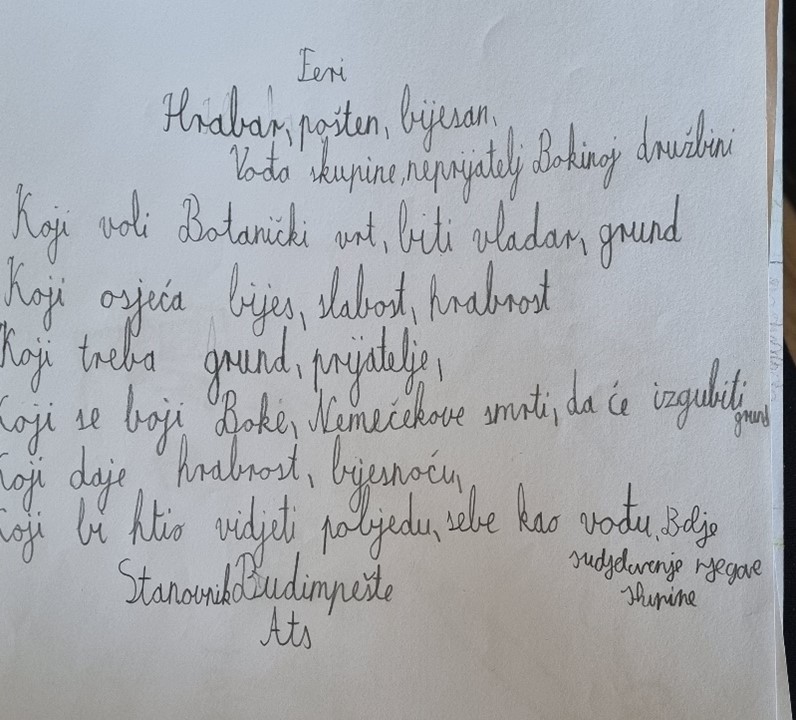 Feri
Hrabar, pošten, bijesan,
Vođa skupine, neprijatelj Bokinoj družbini
Koji voli Botanički vrt, biti vladar, grund
Koji osjeća bijes, slabost, hrabrost
Koji treba grund, prijatelje,
Koji se boji Boke, Nemečekove smrti, da će izgubiti
grund
Koji daje hrabrost, bijesnoću,
Koji bi htio vidjeti pobjedu, sebe kao vođu, Bolje
sudjelovanje njegove
skupine
Stanovnik Budimpešte
Ats